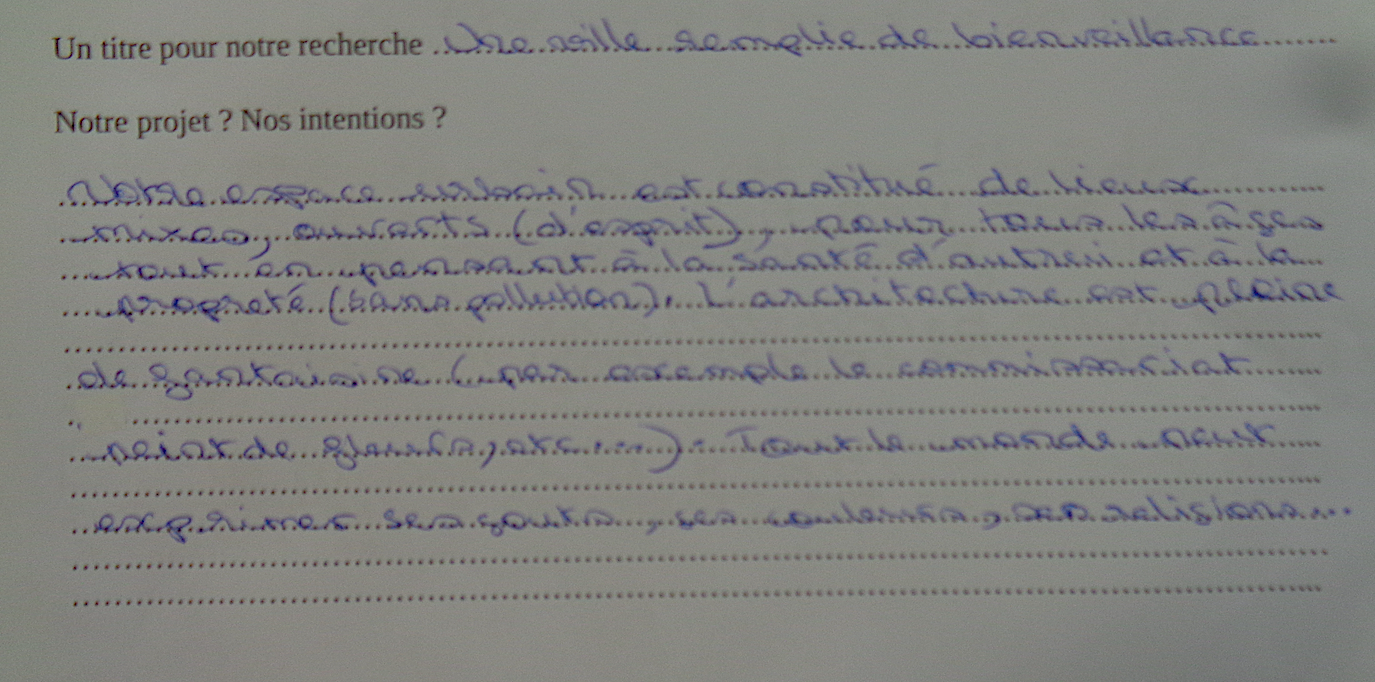 Un titre pour notre recherche Une ville remplie de bienveillance
Notre projet ? Nos intentions ?
Notre espace urbain est constitué de lieux
mixes, ouverts (d'esprit), pour tous les âges
tout en pensant à la santé d'autrui et à la
propreté (sans pollution). L'architecture est pleine
de fantaisie (par exemple le commissariat
peint de fleurs, etc....). Tout le monde peut
exprimer ses gouts, ses couleurs, ses religions...